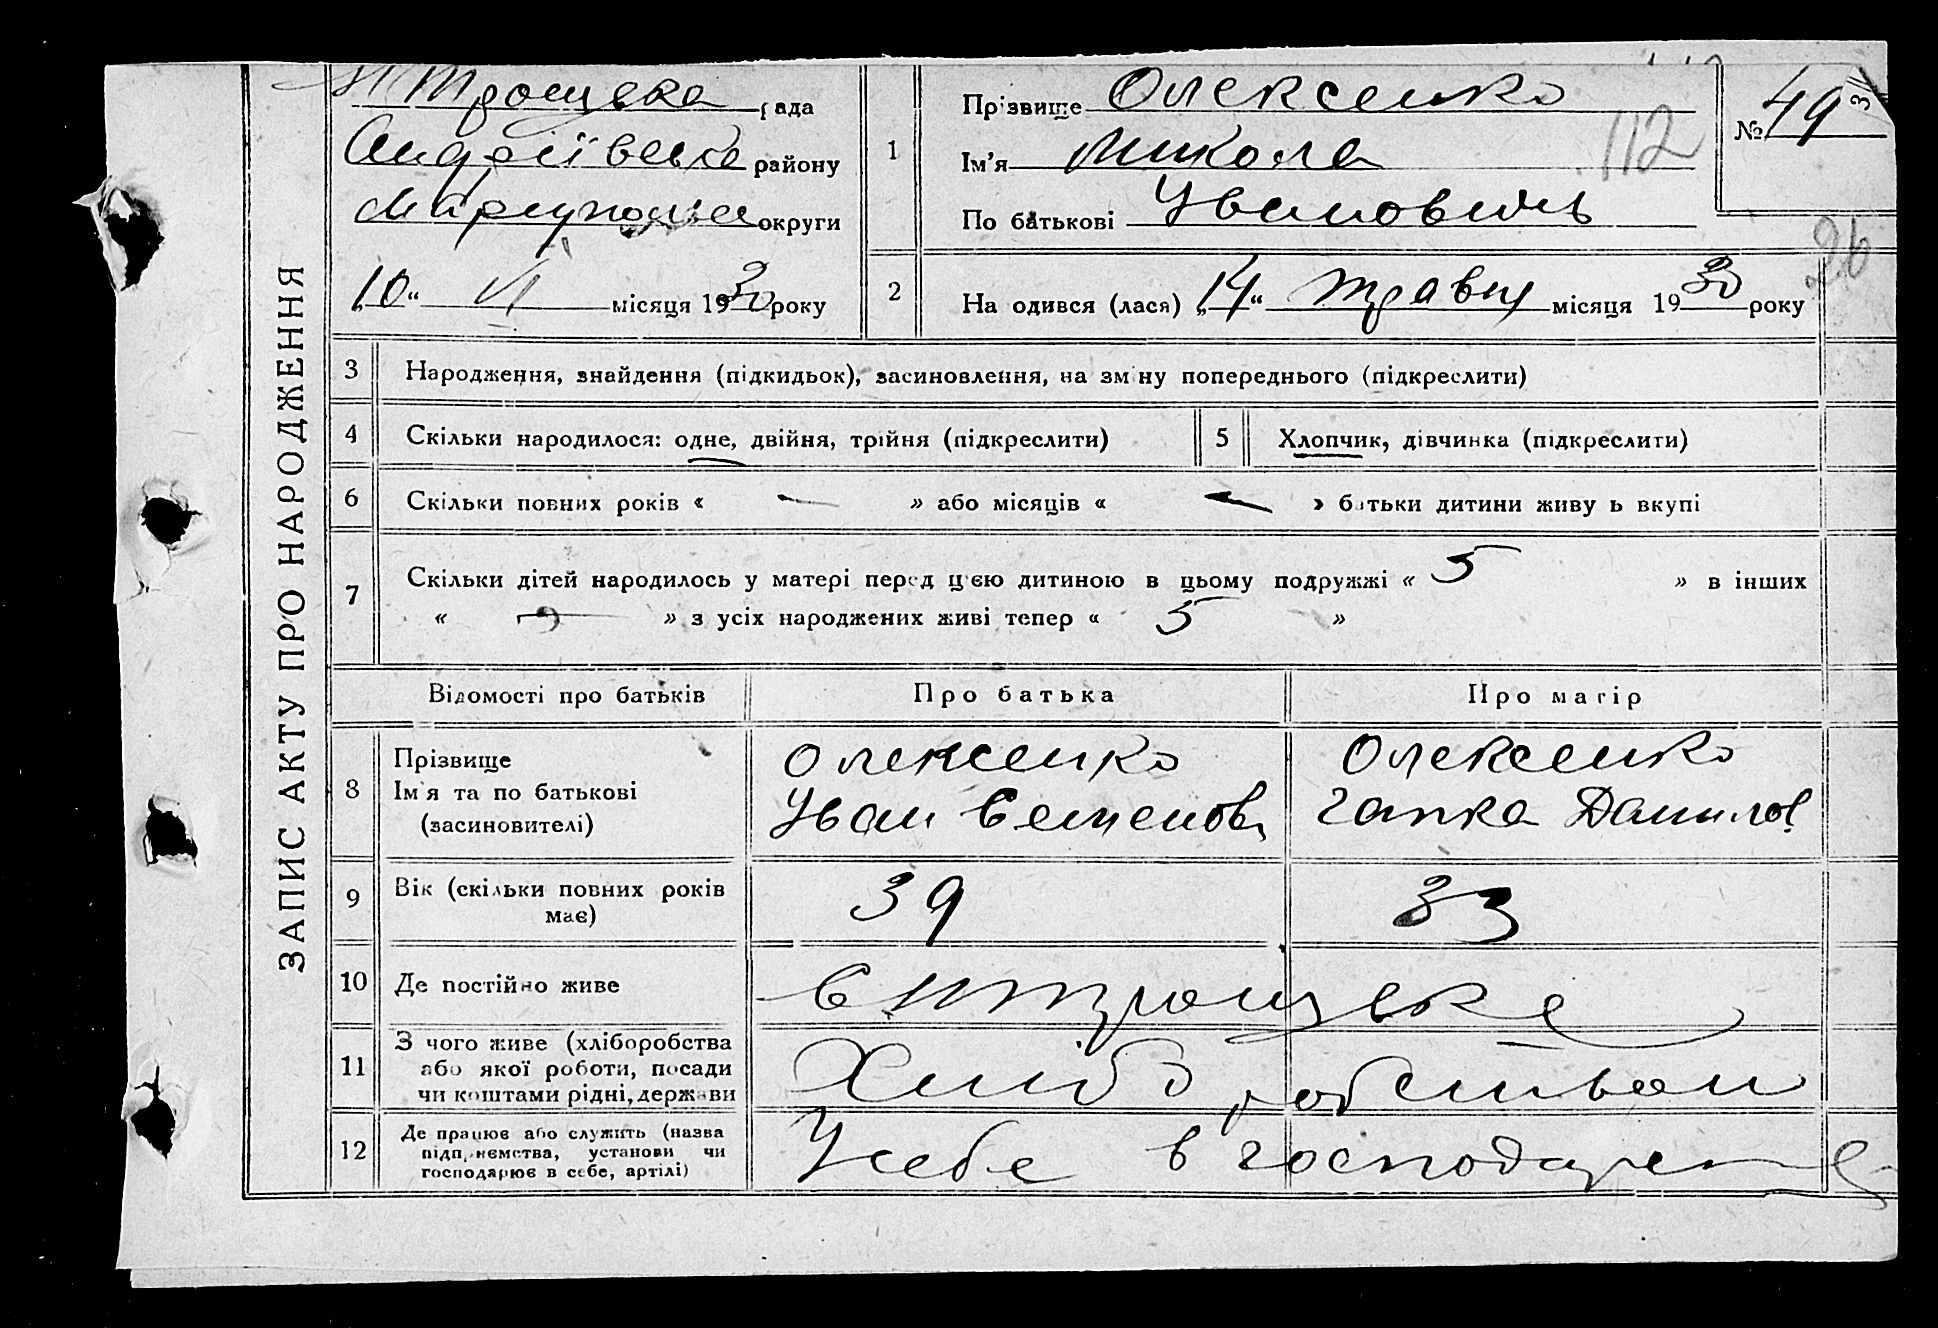 ЗАПИС АКТУ ПРО НАРОДЖЕННЯ
Н Троцька рада
Андріївська району
Маріупольс округи
„10“ VI місяця 1930 року
1
Прізвище Олексенко
Ім'я Микола
По батькові Ивановичь
112
№ 49
26
2
На одився (лася) „14“ травня місяця 1930 року
3 Народження, знайдення (підкидьок), засиновлення, на зміну попереднього (підкреслити)
4 Скільки народилося: одне, двійня, трійня (підкреслити)
5 Хлопчик, дівчинка (підкреслити)
6 Скільки повних років « — » або місяців « — » батьки дитини живу ь вкупі
7 Скільки дітей народилось у матері перед цією дитиною в цьому подружжі « 5 » в інших
« — » з усіх народжених живі тепер « 5 »
Відомості про батьків Про батька Про матір
8 Прізвище
Ім'я та по батькові
(засиновителі)
Олексенко
Иван Семенов
Олексенко
Гапка Данилов
9 Вік (скільки повних років
має)
39
33
10 Де постійно живе
с
11 З чого живе (хліборобства
або якої роботи, посади
чи коштами рідні, держави
Хлібо робством
12 Де працює або служить (назва
підприємства, установи чи
господарює в себе, артілі)
У себе в господарстве